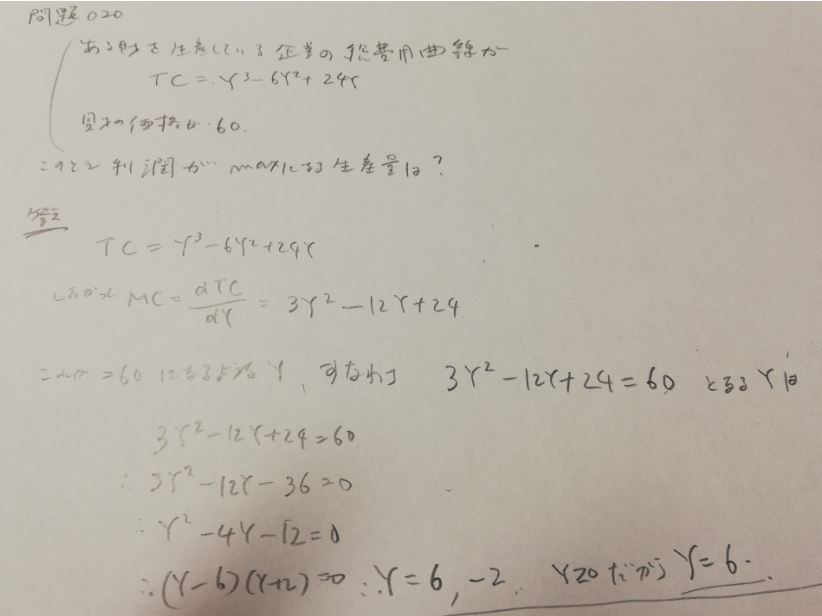 問題020
ある財を生産している企業の総費用曲線が
TC = Y³-6Y²+24Y
財の価格が60.
このとき利潤がmaxになる生産量は?
答え
TC = Y³-6Y²+24Y
したがって MC = dTC/dY = 3Y²-12Y+24
これが=60になるようなY、すなわち 3Y²-12Y+24=60 となるYは
3Y²-12Y+24=60
∴ 3Y²-12Y-36=0
∴ Y²-4Y-12=0
∴(Y-6)(Y+2)=0 ∴Y=6,-2. Y≥0だから Y=6.